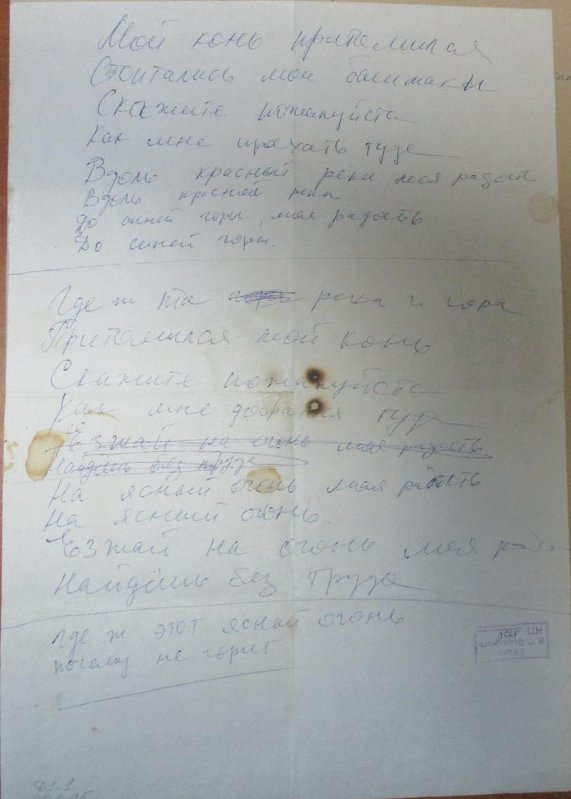 Мой конь притомился
Стоптались мои башмаки
Скажите пожалуйста
Как мне проехать туда
Вдоль красной реки моя радость
Вдоль красной реки
До синей горы, моя радость
До синей горы.
Где ж та река и гора
Притомился мой конь
Скажите пожалуйста
Как мне добраться туда
Езжай на огонь моя радость
Найдёшь без труда
На ясный огонь моя радость
На ясный огонь
Езжай на огонь моя рад.
Найдёшь без труда
Где ж этот ясный огонь
почему не горит